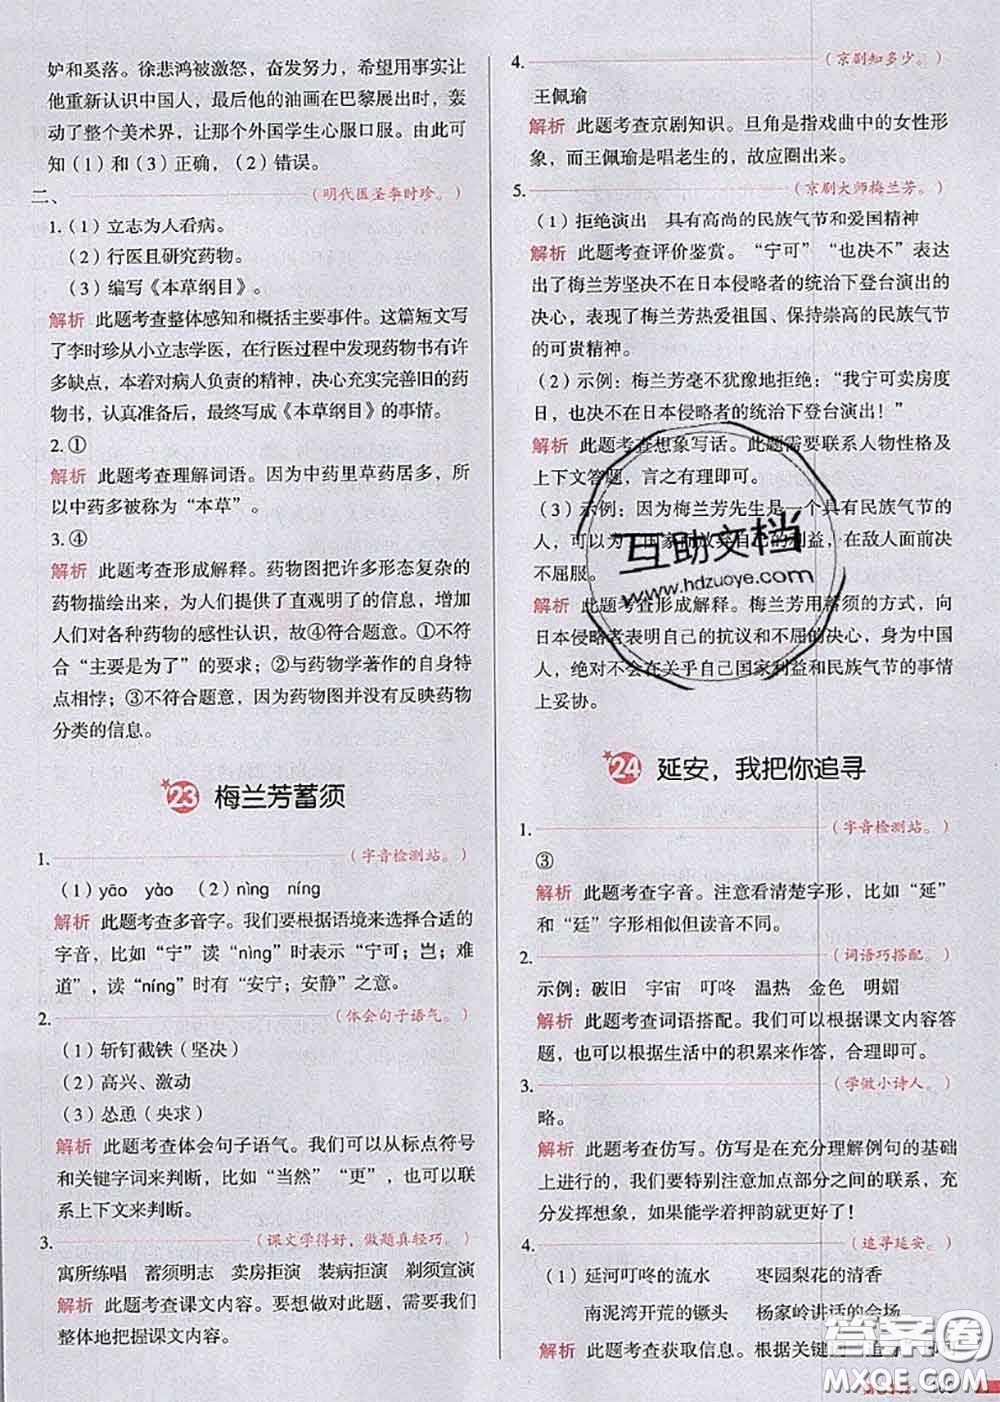 妒和奚落。徐悲鸿被激怒，奋发努力，希望用事实让
他重新认识中国人，最后他的油画在巴黎展出时，轰
动了整个美术界，让那个外国学生心服口服。由此可
知（1）和（3）正确，（2）错误。
二、（明代医圣李时珍。）
1.（1）立志为人看病。
（2）行医且研究药物。
（3）编写《本草纲目》。
解析 此题考查整体感知和概括主要事件。这篇短文写
了李时珍从小立志学医，在行医过程中发现药物书有许
多缺点，本着对病人负责的精神，决心充实完善旧的药
物书，认真准备后，最终写成《本草纲目》的事情。
2.①
解析 此题考查理解词语。因为中药里草药居多，所
以中药多被称为“本草”。
3.④
解析 此题考查形成解释。药物图把许多形态复杂的
药物描绘出来，为人们提供了直观明了的信息，增加
人们对各种药物的感性认识，故④符合题意。①不符
合“主要是为了”的要求；②与药物学著作的自身特
点相悖；③不符合题意，因为药物图并没有反映药物
分类的信息。
23 梅兰芳蓄须
1.（字音检测站。）
（1）yāo yào （2）nìng níng
解析 此题考查多音字。我们要根据语境来选择合适的
字音，比如“宁”读“nìng”时表示“宁可；岂；难
道”，读“níng”时有“安宁；安静”之意。
2.（体会句子语气。）
（1）斩钉截铁（坚决）
（2）高兴、激动
（3）怂恿（央求）
解析 此题考查体会句子语气。我们可以从标点符号
和关键字词来判断，比如“当然”“更”，也可以联
系上下文来判断。
3.（课文学得好，做题真轻巧。）
寓所练唱 蓄须明志 卖房拒演 装病拒演 剃须宣演
解析 此题考查课文内容。要想做对此题，需要我们
整体地把握课文内容。
4.（京剧知多少。）
王佩瑜
解析 此题考查京剧知识。旦角是指戏曲中的女性形
象，而王佩瑜是唱老生的，故应圈出来。
5.（京剧大师梅兰芳。）
（1）拒绝演出 具有高尚的民族气节和爱国精神
解析 此题考查评价鉴赏。“宁可”“也决不”表达
出了梅兰芳坚决不在日本侵略者的统治下登台演出的
决心，表现了梅兰芳热爱祖国、保持崇高的民族气节
的可贵精神。
（2）示例：梅兰芳毫不犹豫地拒绝：“我宁可卖房度
日，也决不在日本侵略者的统治下登台演出！”
解析 此题考查想象写话。此题需要联系人物性格及
上下文答题，言之有理即可。
（3）示例：因为梅兰芳先生是一个具有民族气节的
人，可以为了国家而放弃自己的利益，在敌人面前决
不屈服。
解析 此题考查形成解释。梅兰芳用蓄须的方式，向
日本侵略者表明自己的抗议和不屈的决心，身为中国
人，绝对不会在关乎自己国家利益和民族气节的事情
上妥协。
24 延安，我把你追寻
1.（字音检测站。）
③
解析 此题考查字音。注意看清楚字形，比如“延”
和“廷”字形相似但读音不同。
2.（词语巧搭配。）
示例：破旧 宇宙 叮咚 温热 金色 明媚
解析 此题考查词语搭配。我们可以根据课文内容答
题，也可以根据生活中的积累来作答，合理即可。
3.（学做小诗人。）
略。
解析 此题考查仿写。仿写是在充分理解例句的基础
上进行的，我们要特别注意加点部分之间的联系，充
分发挥想象，如果能学着押韵就更好了！
4.（追寻延安。）
（1）延河叮咚的流水 枣园梨花的清香
南泥湾开荒的镢头 杨家岭讲话的会场
解析 此题考查获取信息。根据关键词
互助文档
www.hdzuoye.com
答案圈
MXQE.COM